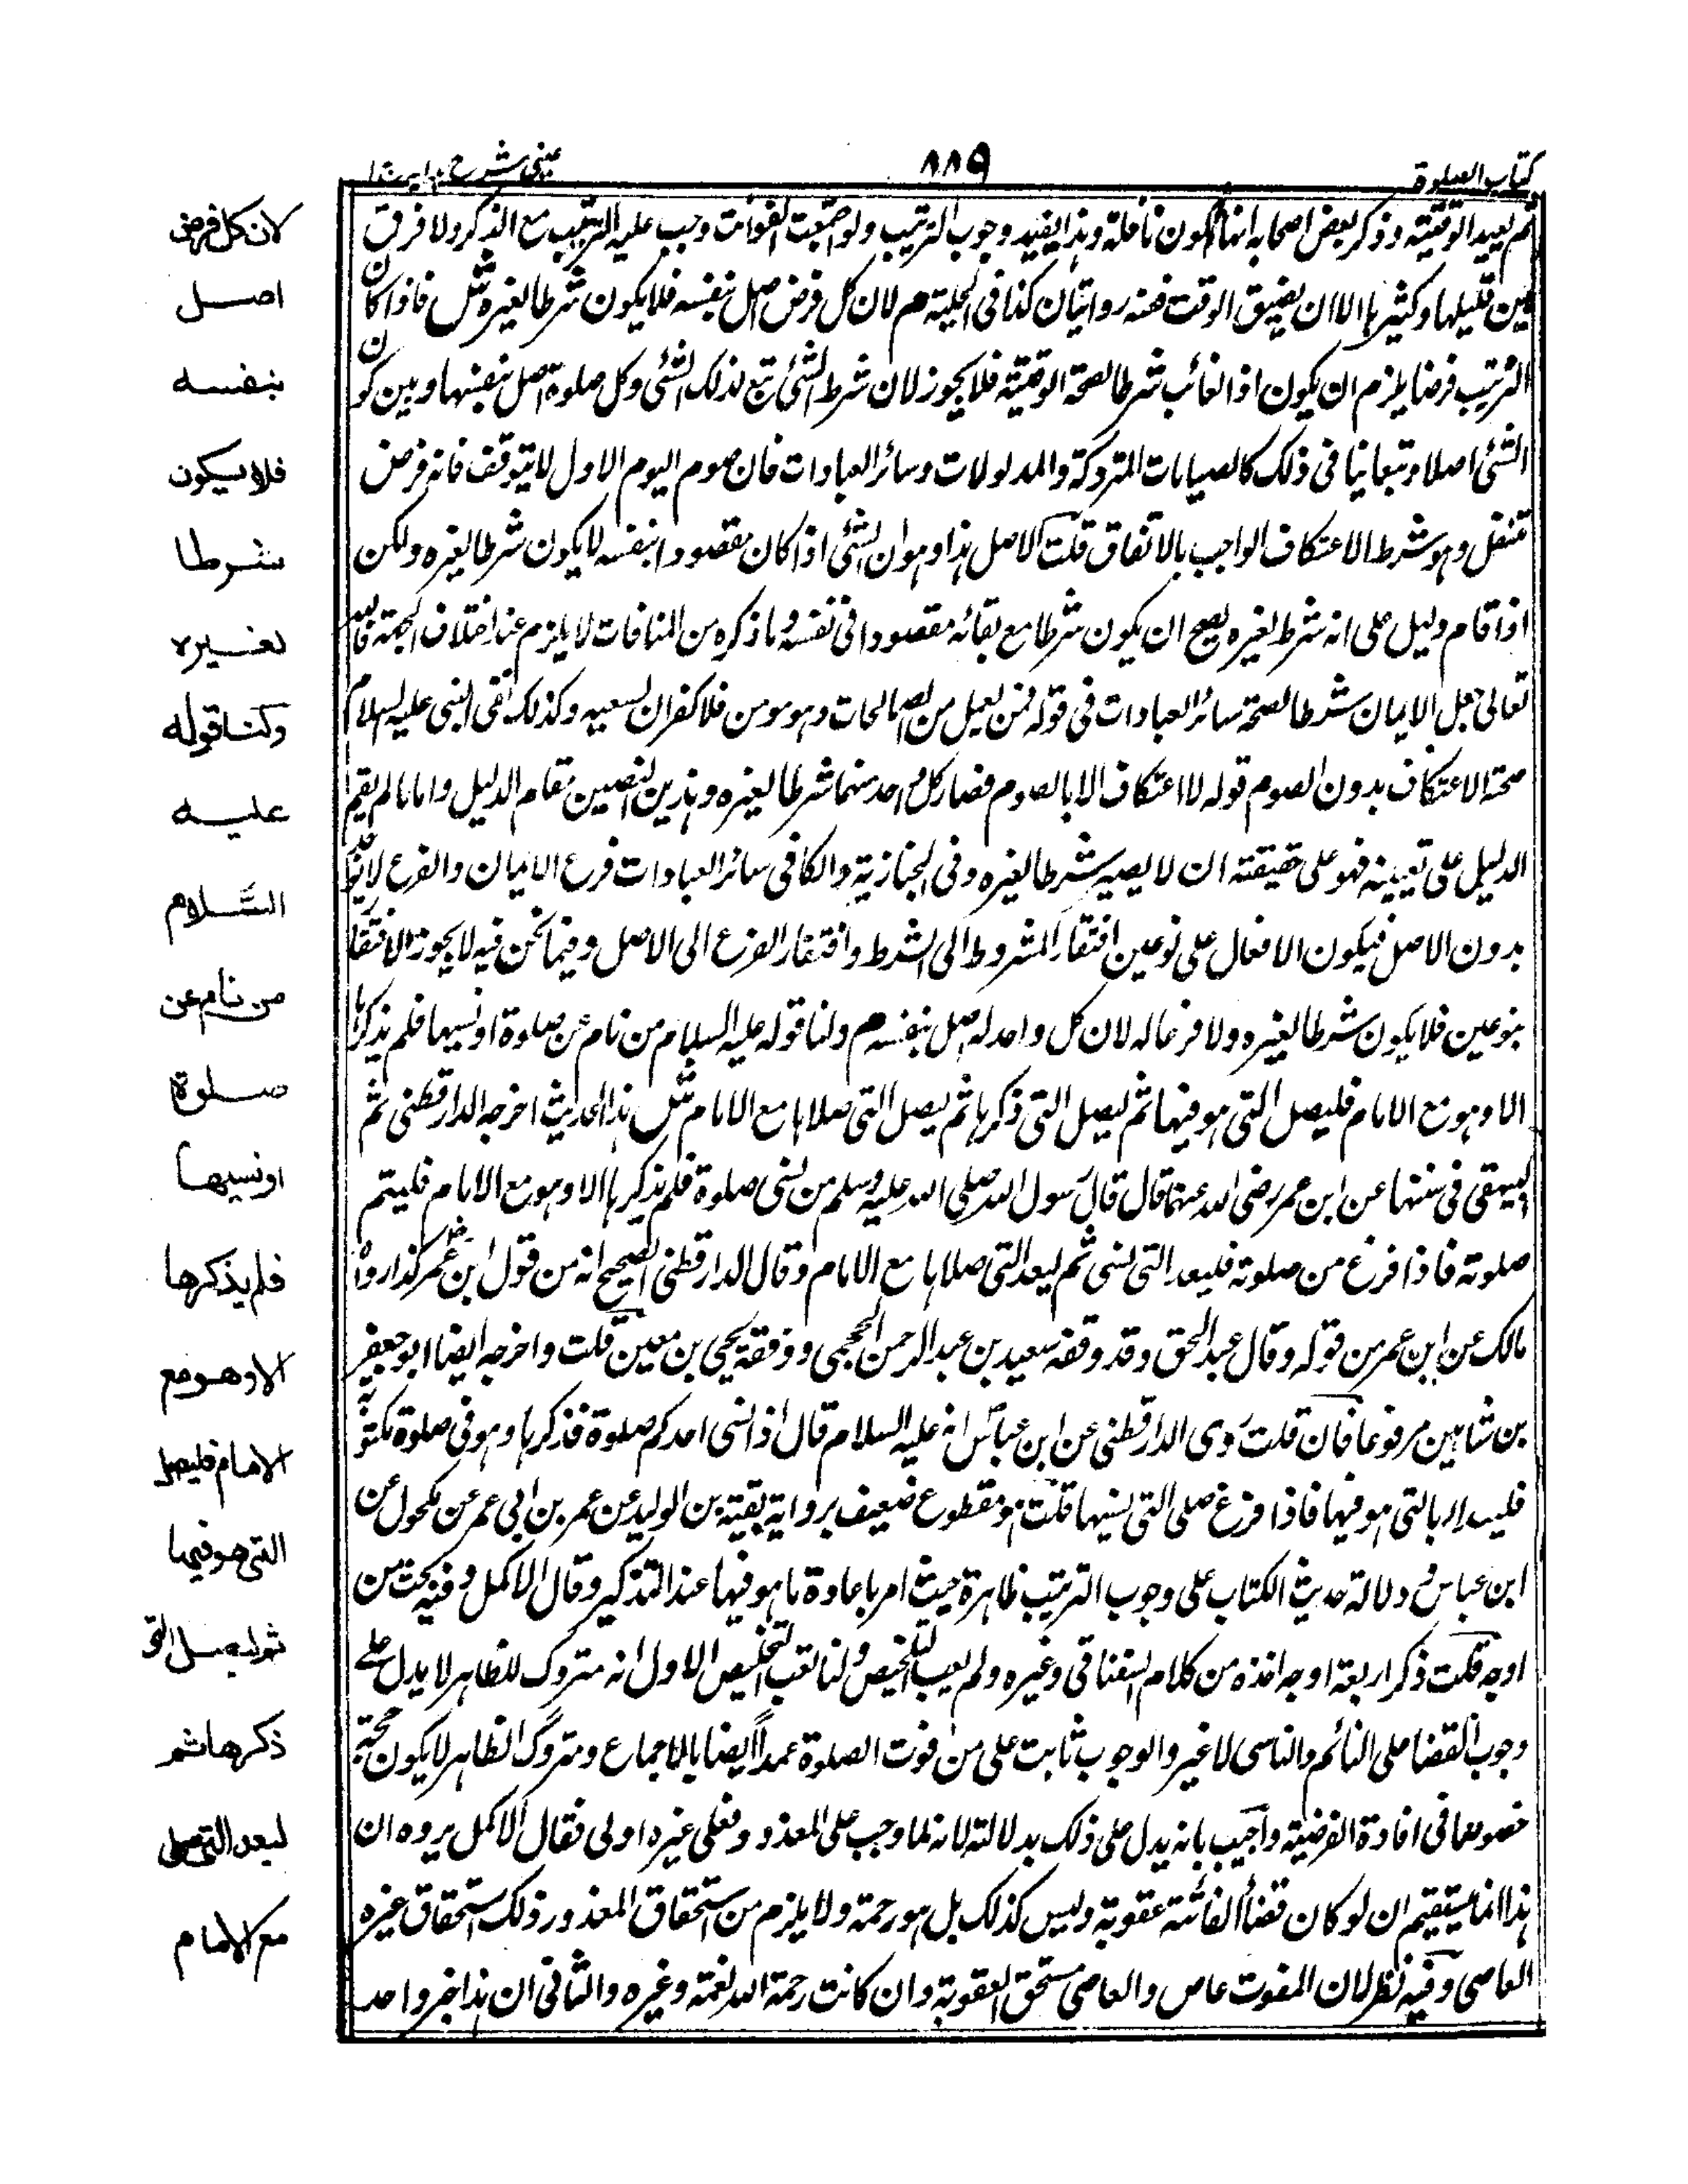 كتاب الصلوة
٨٨٩
عينى شرح هداية ج ١
ثم يعيد الوقتية وذكر بعض اصحابه انها تكون نافلة وهذا يفيد وجوب الترتيب ولو اجتمعت الفوائت وجب عليه الترتيب مع الذكر ولا فرق
بين قليلها وكثيرها الا ان يضيق الوقت ففيه روايتان كذا فى الحلية م لان كل فرض اصل بنفسه فلا يكون شرطا لغيره ش فاذا كان
الترتيب فرضا يلزم ان يكون اذ الفائت شرطا لصحة الوقتية فلا يجوز لان شرط الشئ تبع لذلك الشئ وكل صلوة اصل بنفسها وبين كون
الشئ اصلا وتبعا تنافى ذلك كالصيامات المتروكة وسائر العبادات فان صوم اليوم الاول لا يتوقف فانه فرض
تنفل وهو شرط الاعتكاف الواجب بالاتفاق قلت الاصل هذا وهو ان الشئ اذا كان مقصودا بنفسه لا يكون شرطا لغيره ولكن
اذا قام دليل على انه شرط لغيره يصح ان يكون شرطا مع بقائه مقصودا فى نفسه وما ذكره من المنافات لا يلزم عند اختلاف الجهة فالله
تعالى جعل الايمان شرطا لصحة سائر العبادات فى قوله فمن يعمل من الصالحات وهو مومن فلا كفران لسعيه وكذلك نفى النبى عليه السلام
صحة الاعتكاف بدون الصوم قوله لا اعتكاف الا بالصوم فصار كل واحد منهما شرطا لغيره وهذين النصين مقام الدليل واما ما لم يقم
الدليل على تعيينه فهو على حقيقته ان لا يصير شرطا لغيره وفى الخبازية والكافى سائر العبادات فرع الايمان والفرع لا يوجد
بدون الاصل فيكون الافعال على نوعين افتقار المشروط الى الشرط وافتقار الفرع الى الاصل وفيما نحن فيه لا يجوز الافتقار
بنوعين فلا يكون شرطا لغيره ولا فرعا له لان كل واحد له اصل بنفسه م ولنا قوله عليه السلام من نام عن صلوة او نسيها فلم يذكرها
الا وهو مع الامام فليصل التى هو فيها ثم ليصل التى ذكرها ثم يصل التى صلاها مع الامام ش هذا الحديث اخرجه الدارقطنى ثم
البيهقى فى سننها عن ابن عمر رضى الله عنهما قال قال رسول الله صلى الله عليه وسلم من نسى صلوة فلم يذكرها الا وهو مع الامام فليتم
صلوته فاذا فرغ من صلوته فليعد التى نسى ثم ليعد التى صلاها مع الامام وقال الدارقطنى الصحيح انه من قول ابن عمر كذا رواه
مالك عن ابن عمر من قوله وقال عبد الحق وقد وقفه سعيد بن عبد الرحمن الجمحى ووثقه يحيى بن معين قلت واخرجه ايضا ابو حفص
بن شاهين مرفوعا فان قلت روى الدارقطنى عن ابن عباس انه عليه السلام قال اذا نسى احدكم صلوة فذكرها وهو فى صلوة مكتوبة
فليبدا بالتى هو فيها فاذا فرغ صلى التى نسيها قلت هو مقطوع ضعيف برواية بقية بن الوليد عن عمر بن ابى عمر عن مكحول عن
ابن عباس م ودلالة حديث الكتاب على وجوب الترتيب ظاهرة حيث امر باعادة ما هو فيها عند التذكير وقال الاكمل وفيه بحث من
اوجه قلت ذكر اربعة اوجه اخذه من كلام السغناقى وغيره ولم يعب التلخيص ولنا تعب التخليص الاول انه متروك الظاهر لا يدل على
وجوب القضا على النائم والناسى لا غير والوجوب ثابت على من فوت الصلوة عمدا ايضا بالاجماع ومتروك الظاهر لا يكون حجة
خصوصا فى افادة الفرضية واجيب بانه يدل على ذلك بدلالته لانه لما وجب على المعذور فعلى غيره اولى فقال الاكمل يروه ان
هذا انما يستقيم ان لو كان قضاء الفائتة عقوبة وليس كذلك بل هو رحمة ولا يلزم من استحقاق المعذور ذلك استحقاق غيره
العاصى وفيه نظر لان المفوت عاص والعاصى مستحق العقوبة وان كانت رحمة الله نعمة وغيره والثانى ان هذا خبر واحد
لان كل فرض
اصل
بنفسه
فلا يكون
شرطا
لغيره
ولنا قوله
عليه
السَّلام
من نام عن
صلوة
او نسيها
فلم يذكرها
الا وهو مع
الامام فليصل
التى هو فيها
ثم ليصل التى
ذكرها ثم
ليعد التى صلى
مع الامام